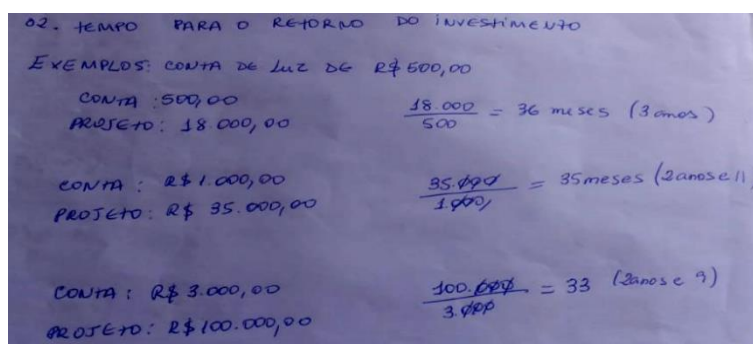 02. TEMPO PARA O RETORNO DO INVESTIMENTO
EXEMPLOS: CONTA DE LUZ DE R$ 500,00
CONTA : 500,00
PROJETO : 18.000,00
18.000 / 500 = 36 meses (3 anos)
CONTA : R$ 1.000,00
PROJETO : R$ 35.000,00
35.000 / 1.000 = 35 meses (2 anos e 11
CONTA : R$ 3.000,00
PROJETO : R$ 100.000,00
100.000 / 3.000 = 33 (2 anos e 9)